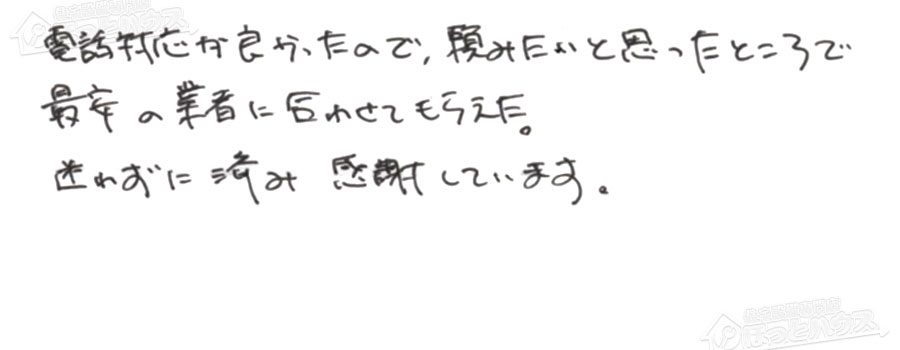 電話対応が良かったので、頼みたいと思ったところで
最安の業者に合わせてもらえた。
迷わずに済み 感謝しています。
ほっとハウス
ほっとハウス